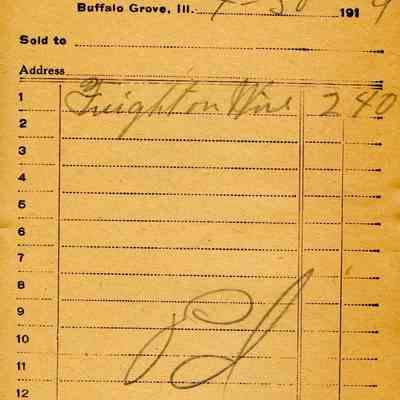 Buffalo Grove, Ill. 4-30 1919
Sold to
Address
1 Freight on Wire 2 40
2
3
4
5
6
7
8
9
10
11
12